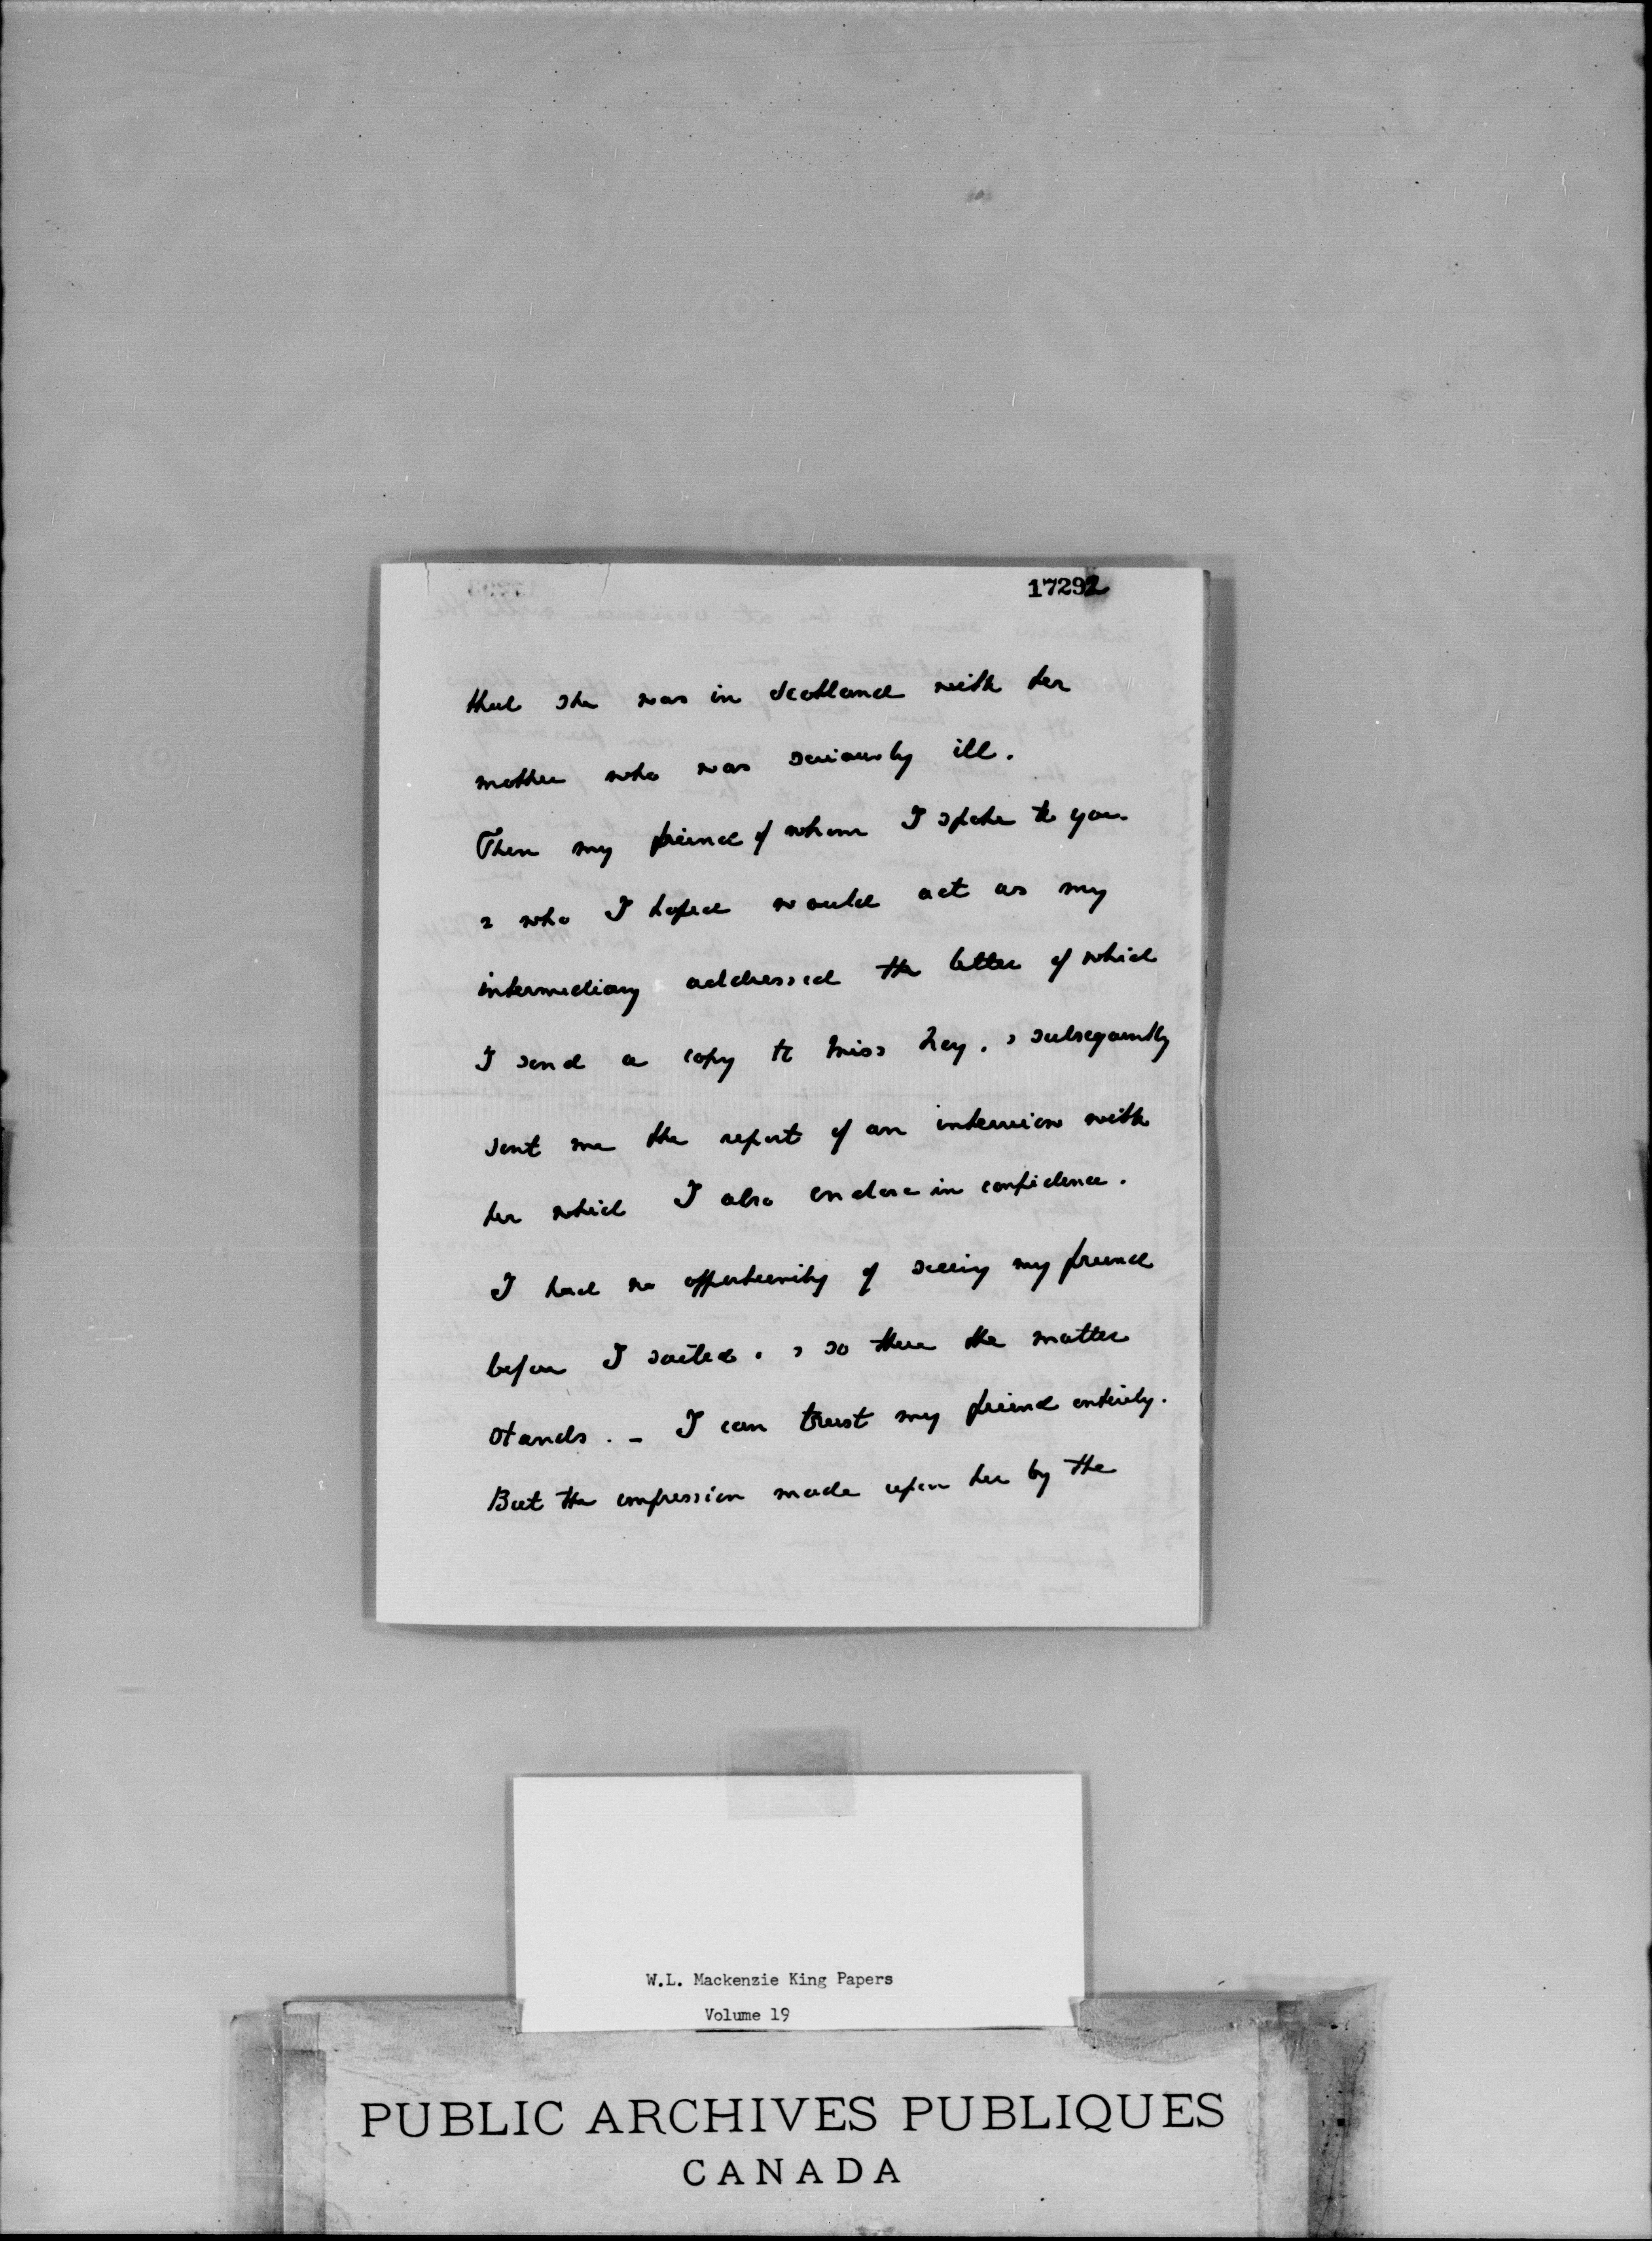 17292
that she was in Scotland with her
mother who was seriously ill.
Then my friend of whom I spoke to you
& who I hoped would act as my
intermediary addressed the letter of which
I send a copy to Miss Hey. & subsequently
sent me the report of an interview with
her which I also enclose in confidence.
I had no opportunity of seeing my friend
before I sailed. & so there the matter
stands. - I can trust my friend entirely.
But the impression made upon her by the
W.L. Mackenzie King Papers
Volume 19
PUBLIC ARCHIVES PUBLIQUES
CANADA